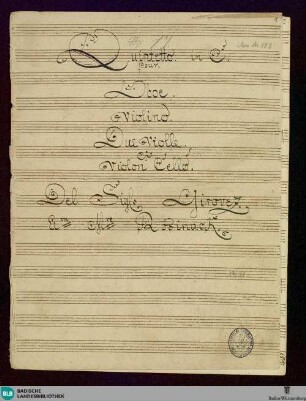 Quintetto. in C.
Pour
Oboe.
Violino.
Due Violle,
Violon Cello.
Del Sigre Girovez.
BLB BADISCHE
LANDESBIBLIOTHEK
Baden-Württemberg